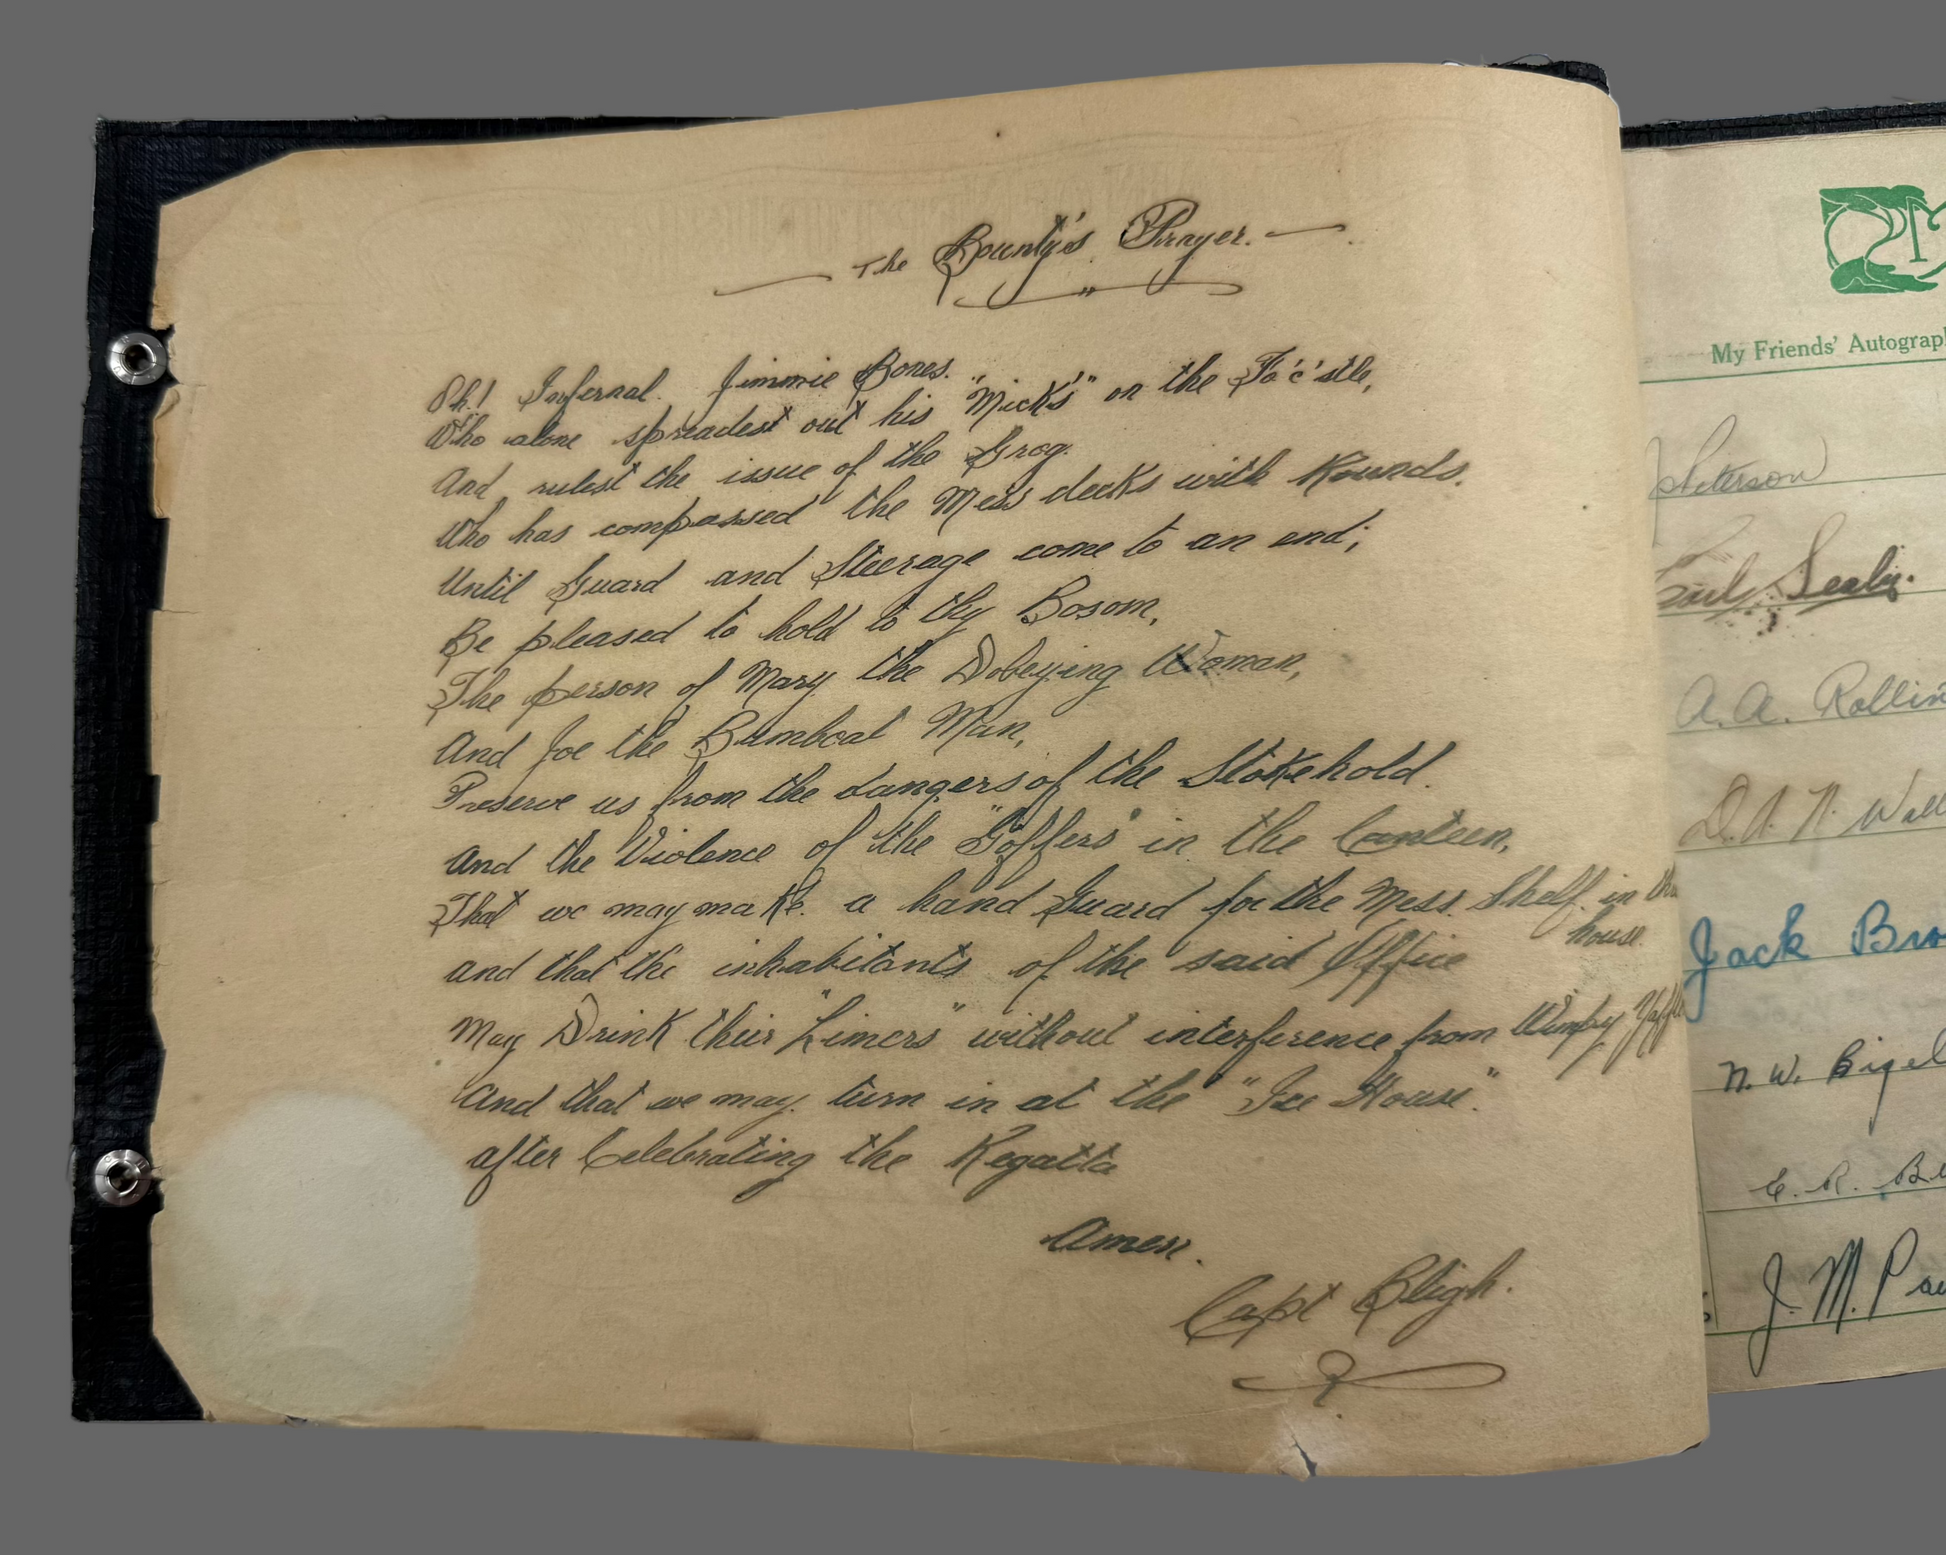 The Bounty's Prayer.
Oh! Infernal. Jimmie Bones.
Who alone spreadest out his "Micks" on the Fo'c'stle,
And rulest the issue of the Grog.
Who has compassed the Mess decks with Rounds.
Until Guard and Steerage come to an end;
Be pleased to hold to thy Bosom,
The person of Mary the Dobeying Woman,
And Joe the Bumboat Man,
Preserve us from the dangers of the Stokehold.
And the Violence of the "Goffers" in the Canteen,
That we may make. a hand Guard for the Mess. Shelf. in
house.
and that the inhabitants of the said Office
May Drink their "Limers" without interference from Wimpy
And that we may turn in at the "Ice House".
after Celebrating the Regatta
Amen.
Capt Bligh.
My Friends' Autograp
Peterson
A. A. Rollin
D. A. N. Wall
Jack Bro
N. W. Bigel
E. R. Be
J. M. Pa